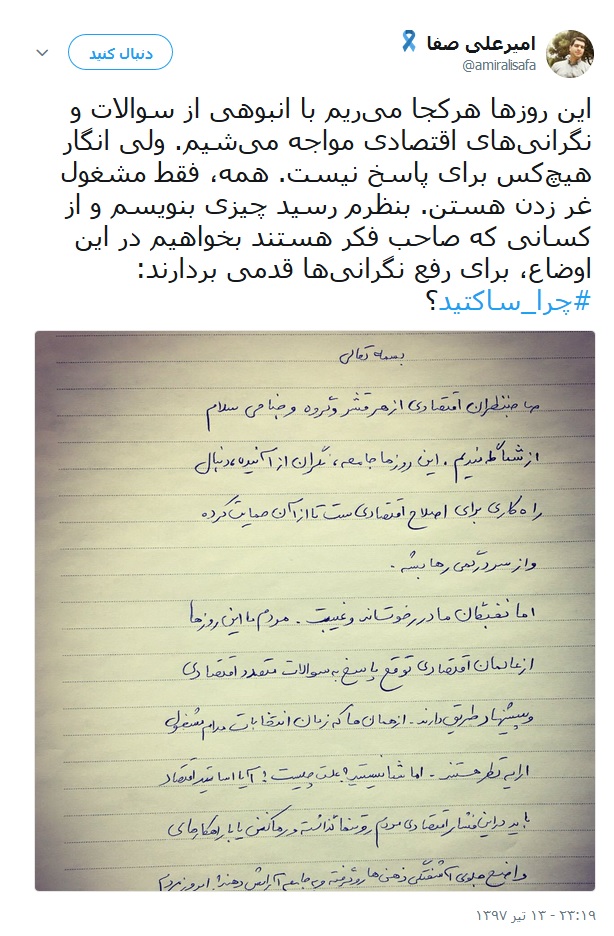 امیرعلی صفا
@amiralisafa
دنبال کنید
این روزها هرکجا می‌ریم با انبوهی از سوالات و
نگرانی‌های اقتصادی مواجه می‌شیم. ولی انگار
هیچ‌کس برای پاسخ نیست. همه، فقط مشغول
غر زدن هستن. بنظرم رسید چیزی بنویسم و از
کسانی که صاحب فکر هستند بخواهیم در این
اوضاع، برای رفع نگرانی‌ها قدمی بردارند:
#چرا_ساکتید؟
بسمه تعالی
صاحبنظران اقتصادی از هر قشر و گروه و جناحی سلام
از شما گله‌مندیم. این روزها جامعه، نگران از آینده، دنبال
راه کاری برای اصلاح اقتصادی ست تا از آن حمایت کرده
و از سردرگمی رها بشه.
اما نخبگان ما در خوشاند و غیبت. مردم ما این روزها
از عالمان اقتصادی توقع پاسخ به سوالات متعدد اقتصادی
و پیشنهاد طریق دارند. از همان ها که زمان انتخابات مدام مشغول
ارایه نظر هستند. اما شما نیستید! علت چیست؟ آیا اساتید اقتصاد
باید در این فشار اقتصادی مردم رو تنها گذاشته و رها کنن یا با راهکارهای
واضح جلوی آشفتگی ذهنی ها رو گرفته و به جامعه آرامش دهند! امروز مردم
۲۳:۱۹ - ۱۳ تیر ۱۳۹۷